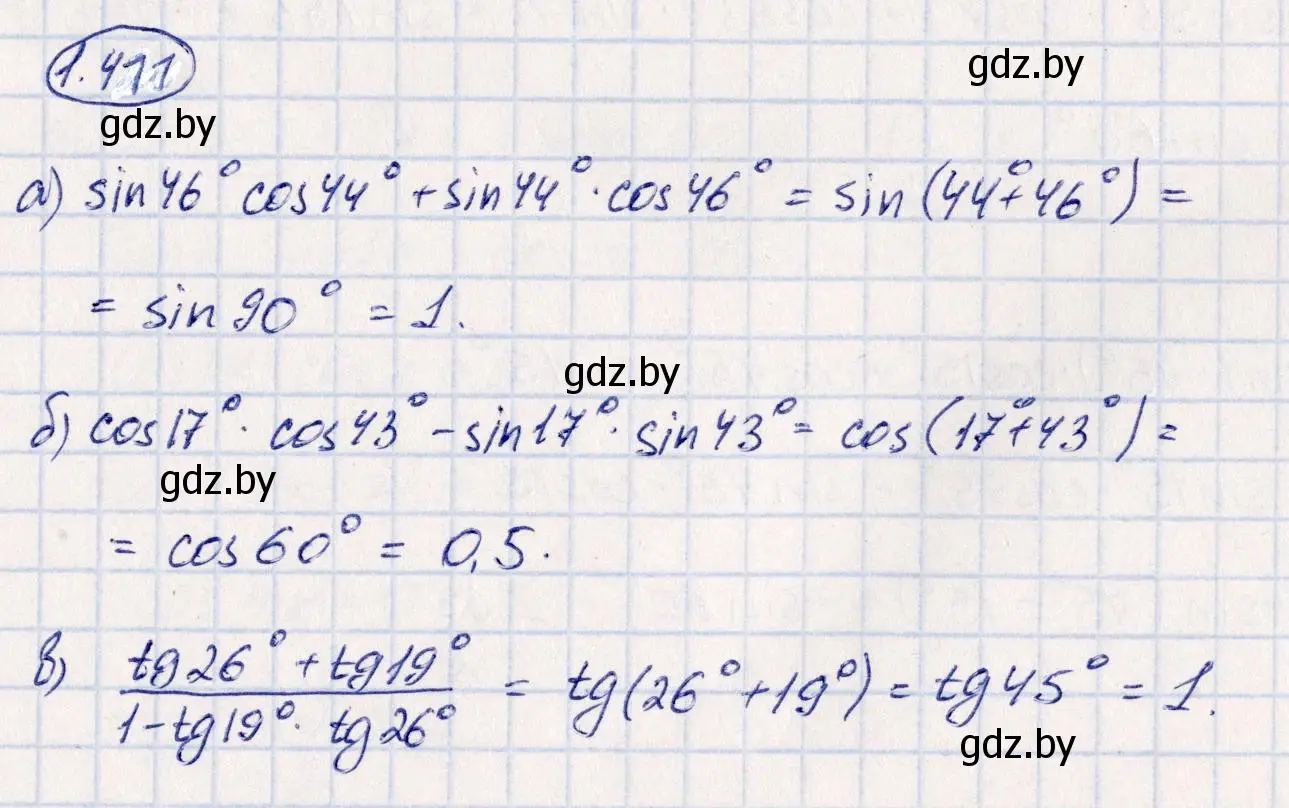 1.411
gdz.by
gdz.by
а) sin46° cos44° + sin44° · cos46° = sin(44°+46°) =
= sin90° = 1.
gdz.by
б) cos17° · cos43° - sin17° · sin43° = cos(17°+43°) =
gdz.by
= cos60° = 0,5.
в) tg26° + tg19° / 1 - tg19° · tg26° = tg(26° + 19°) = tg45° = 1.
gdz.by